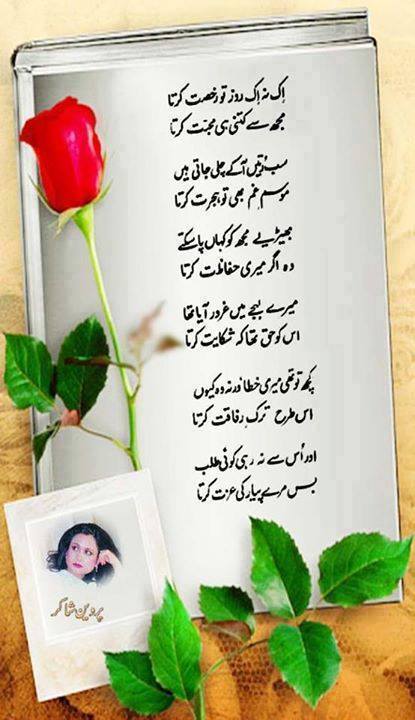 اِک نہ اِک روز تو رخصت کرتا
مجھ سے کتنی ہی محبّت کرتا
سب رُتیں آ کے چلی جاتی ہیں
موسمِ غم بھی تو ہجرت کرتا
بھیڑیے مجھ کو کہاں پا سکتے
وہ اگر میری حفاظت کرتا
میرے لہجے میں غرور آیا تھا
اس کو حق تھا کہ شکایت کرتا
کچھ تو تھی میری خطا ورنہ وہ کیوں
اس طرح ترکِ رفاقت کرتا
اور اُس سے نہ رہی کوئی طلب
بس مرے پیار کی عزت کرتا
پروین شاکر